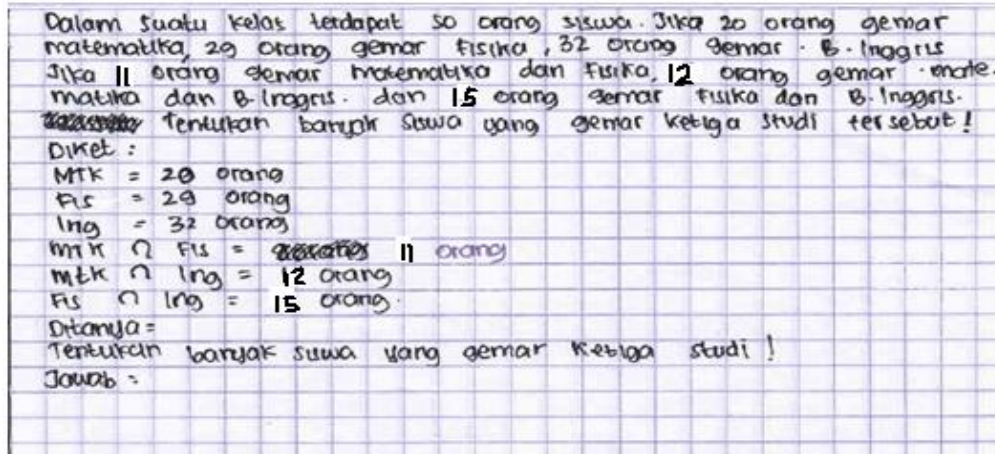 Dalam suatu kelas terdapat 50 orang siswa. Jika 20 orang gemar
matematika, 29 orang gemar fisika, 32 orang gemar B. Inggris
Jika 11 orang gemar matematika dan Fisika, 12 orang gemar mate-
matika dan B. Inggris. dan 15 orang gemar fisika dan B. Inggris.
Tentukan banyak siswa yang gemar ketiga studi tersebut!
Diket :
MTK = 20 orang
Fis = 29 orang
Ing = 32 orang
mtk ∩ Fis = 11 orang
mtk ∩ Ing = 12 orang
Fis ∩ Ing = 15 orang.
Ditanya =
Tentukan banyak siswa yang gemar ketiga studi !
Jawab :